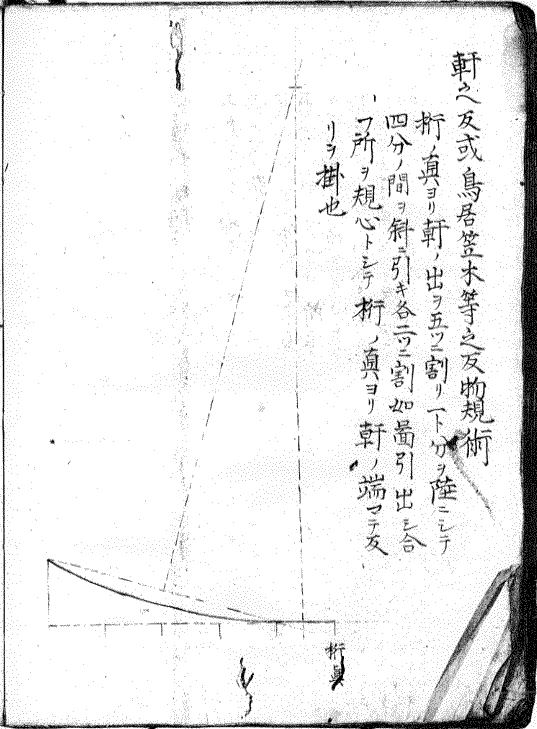 軒之反或鳥居笠木等之反物規術
桁ノ眞ヨリ軒ノ出ヲ五ツニ割リ一ト分ヲ陸ニシテ
四分ノ間ヲ斜ニ引キ各二ツニ割如啚引出シ合
フ所ヲ規心トシテ桁ノ眞ヨリ軒ノ端マテ反
リヲ掛也
桁眞